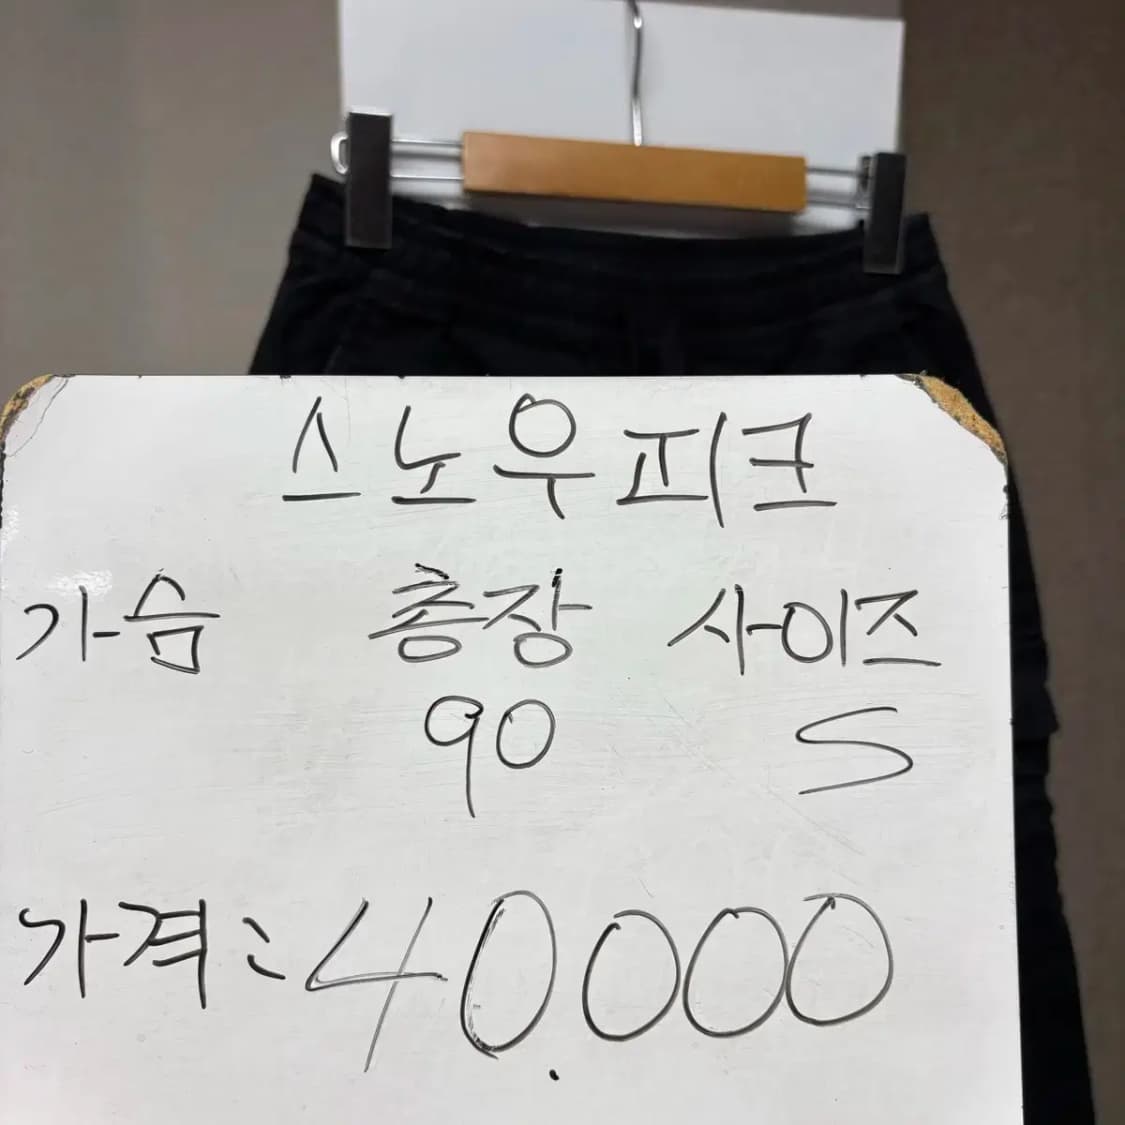 스노우피크
가슴 총장 사이즈
90 S
가격: 40.000